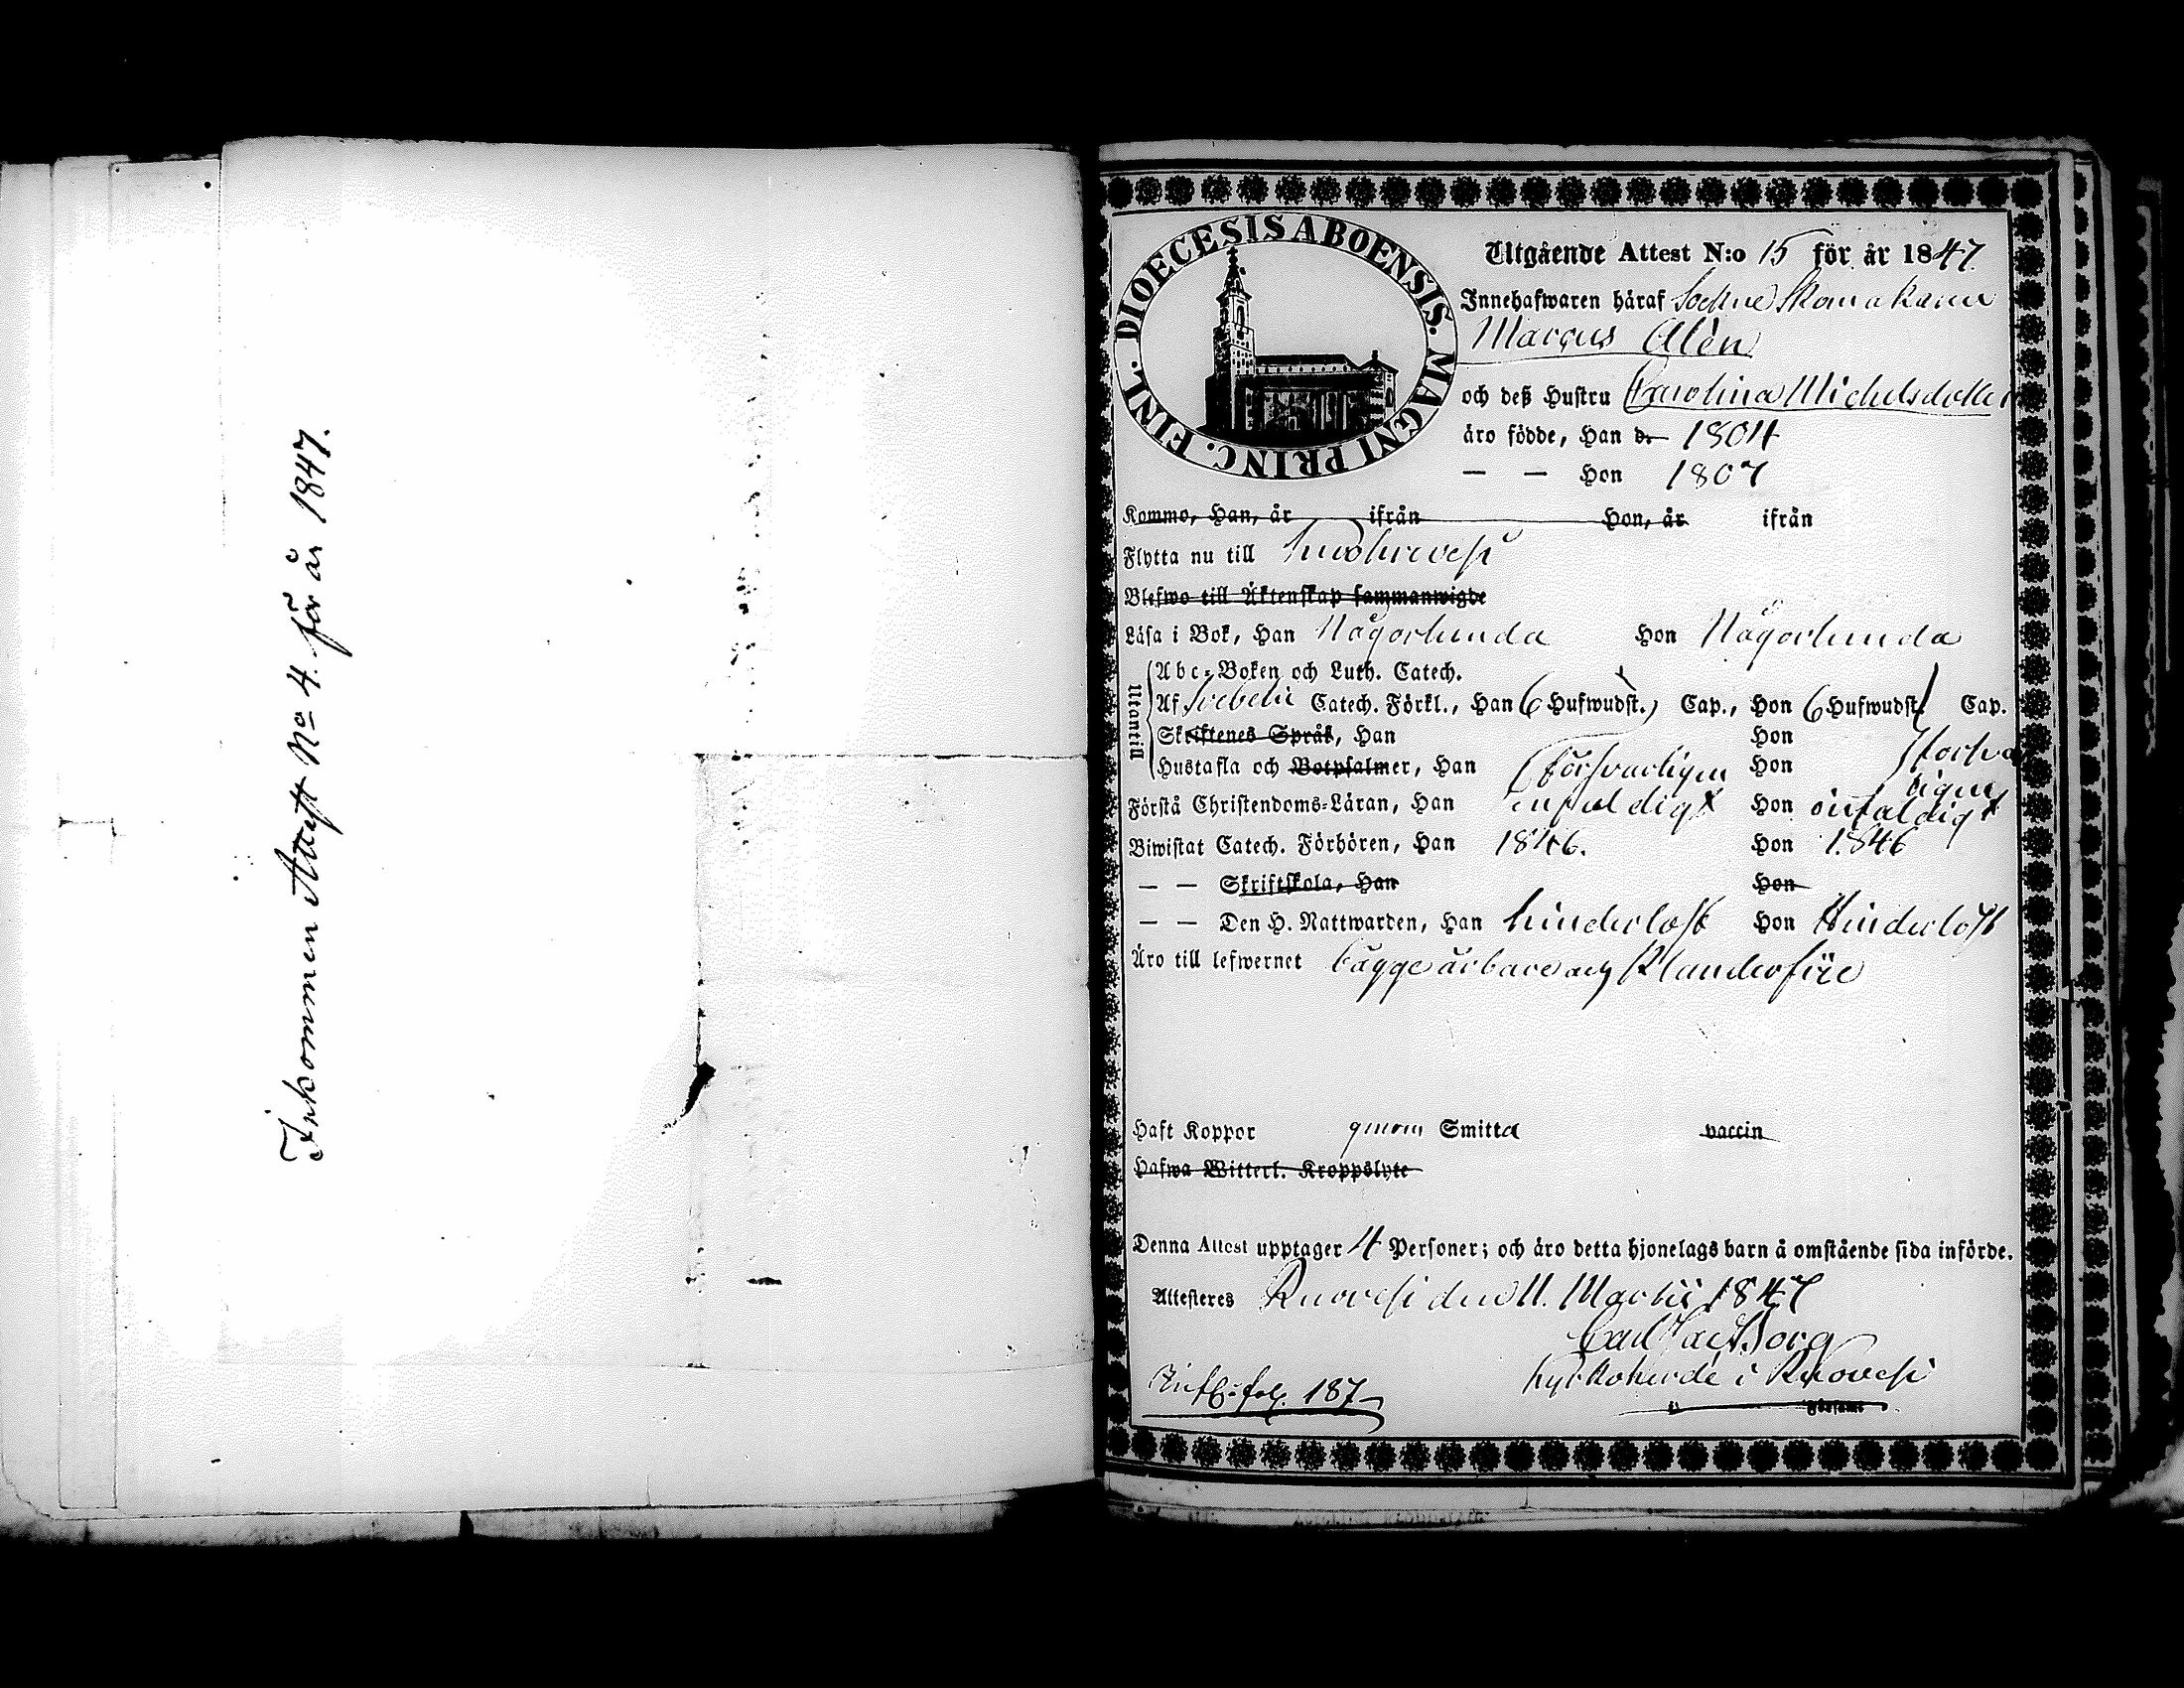 Inkommen Attest No 4. för år 1847.
DIOECESIS ABOENSIS. MAGNI PRINC. FINL.
Utgående Attest N:o 15 för år 1847.
Innehafwaren häraf Sockne Skomakaren
Marcus Alén
och deß Hustru Carolina Michelsdotter
äro födde, Han d. 1804
— — Hon 1807
Kommo, Han, år ifrån Hon, år ifrån
Flytta nu till
Blefwo till Äktenskap sammanwigde
Läsa i Bok, Han Någorlunda Hon Någorlunda
Utantill
Abc-Boken och Luth. Catech.
Af Svebelii Catech. Förkl., Han (6 Hufwudst.) Cap., Hon (6 Hufwudst.) Cap.
Skriftenes Språk, Han Hon
Hustafla och Botpsalmer, Han försvarligen Hon försvarligen
Förstå Christendoms-Läran, Han enfaldigt Hon enfaldigt
Biwistat Catech. Förhören, Han 1846. Hon 1846
— — Skriftskola, Han Hon
— — Den H. Nattwarden, Han hinderlöst Hon Hinderlöst
Äro till lefwernet bägge ärbare och Klanderfrie
Haft Koppor genom Smitta vaccin
Hafwa Witterl. Kroppslyte
Denna Attest upptager 4 Personer; och äro detta hjonelags barn å omstående sida införde.
Attesteres Ruovesi den 11. Martii 1847
Carl Jac. Borg
Kyrkoherde i Ruovesi
187